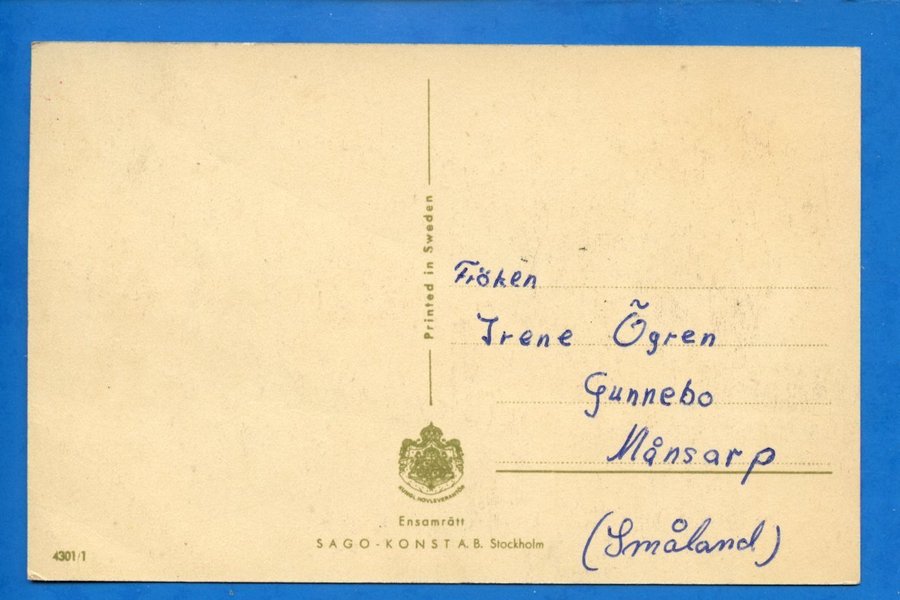 Printed in Sweden
Fröken
Irene Õgren
Gunnebo
Månsarp
(Småland)
KUNGL. HOVLEVERANTÖR
Ensamrätt
SAGO-KONST A.B. Stockholm
4301/1